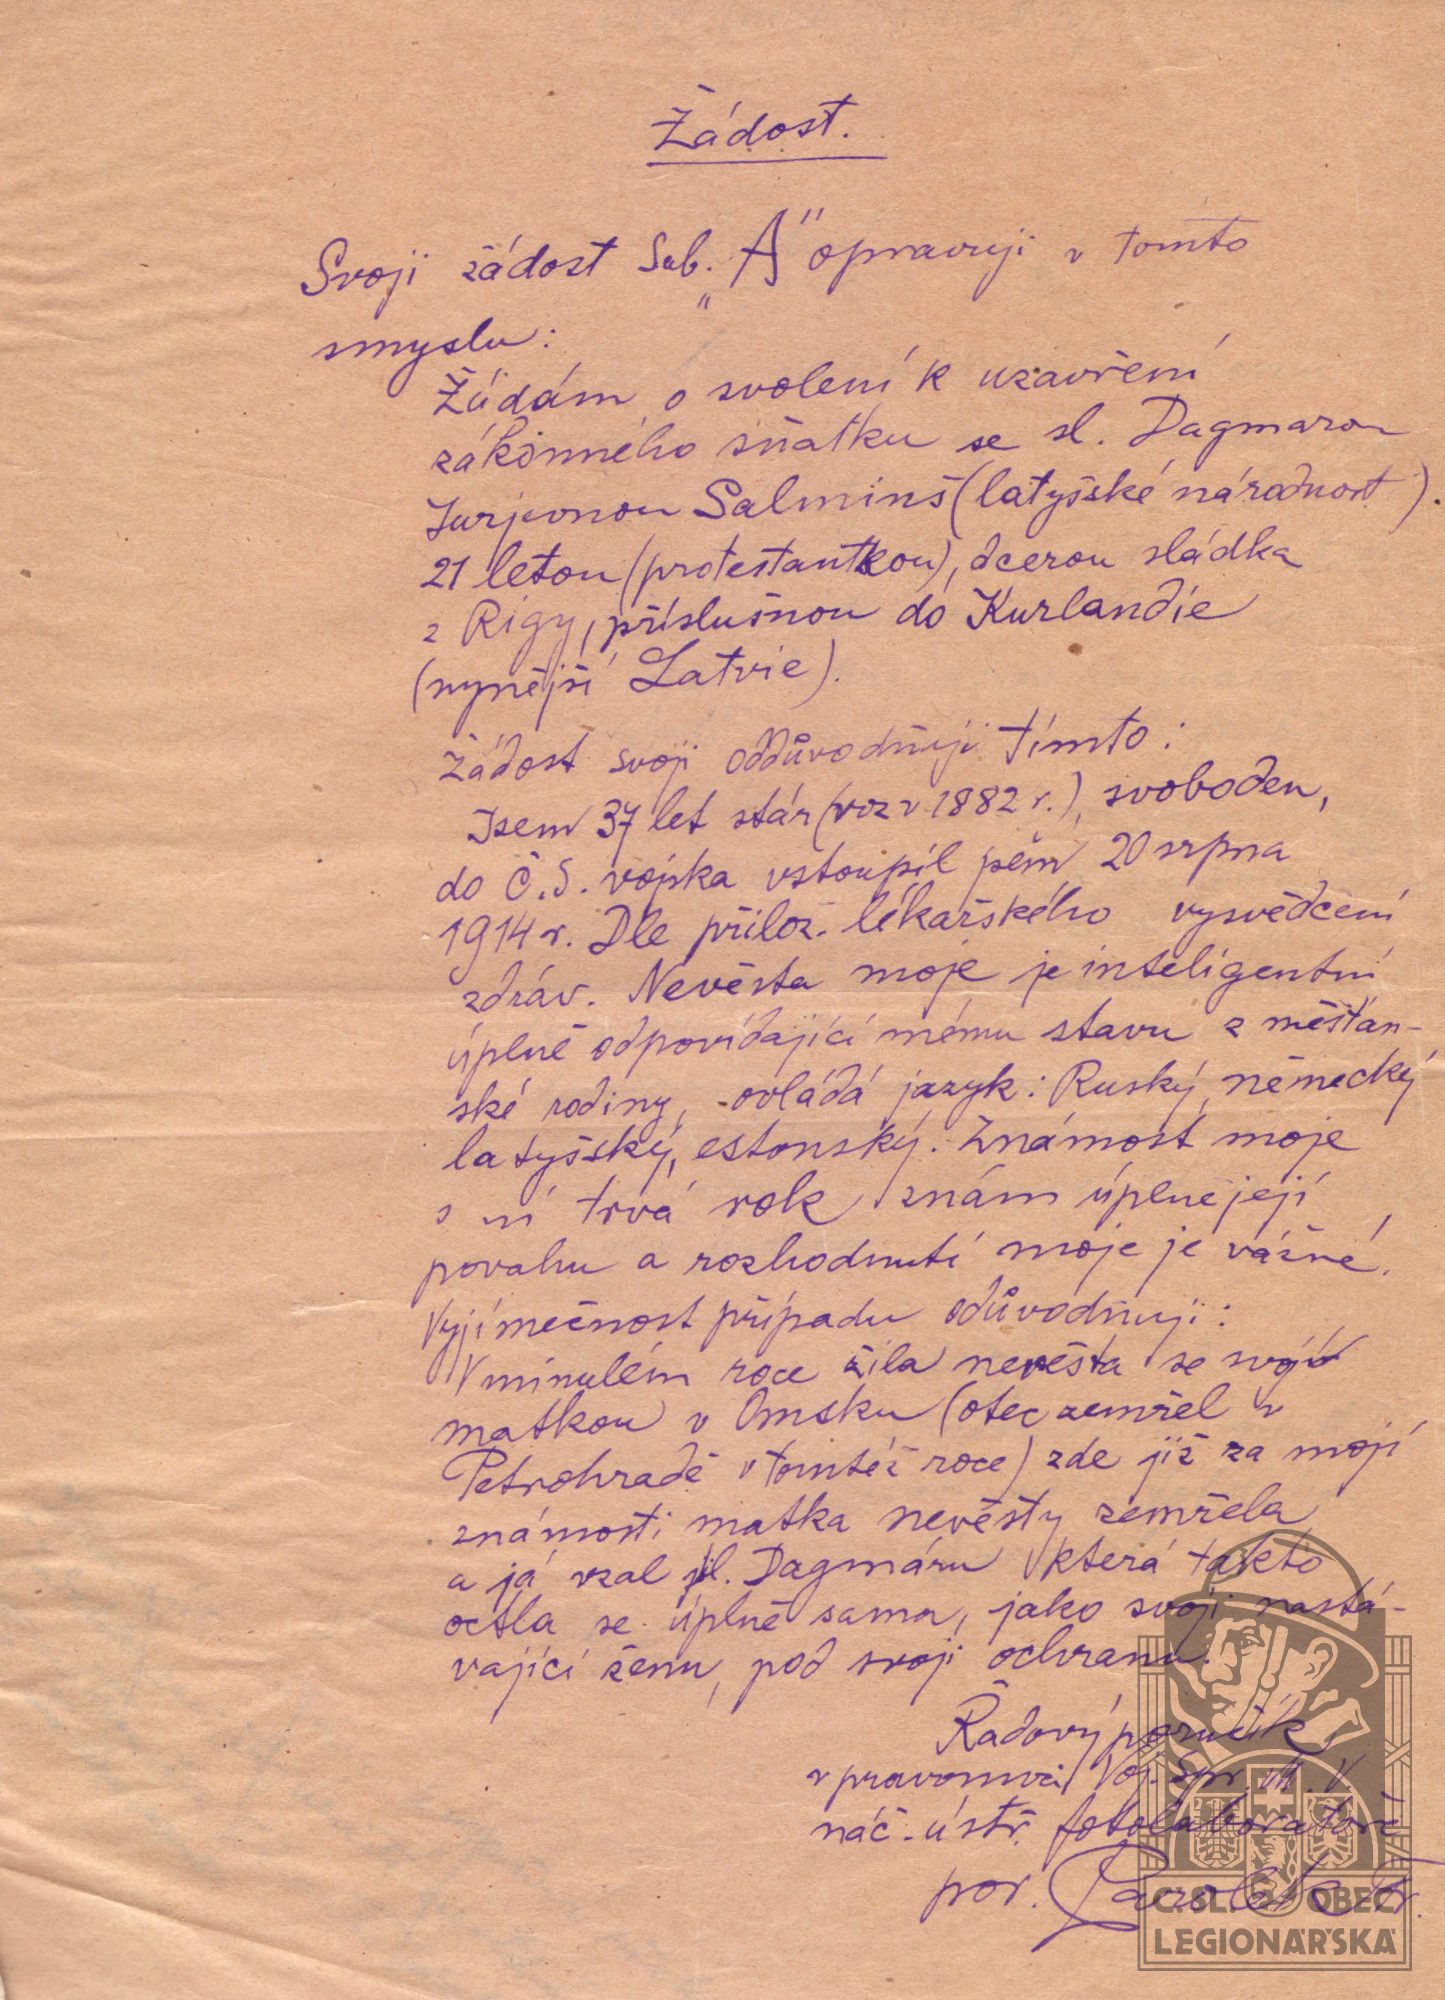 Žádost.
Svoji žádost Sub. „A" opravuji v tomto
smyslu:
Žádám o svolení k uzavření
zákonného sňatku se sl. Dagmarou
Jurjevnou Salminš (latyšské národnost).
21 letou (protestantkou), dcerou sládka
z Rigy, příslušnou do Kurlandie
(nynější Latvie).
Žádost svoji oddůvodňuji tímto:
Jsem 37 let stár (roz v 1882 r.), svoboden,
do Č.S. vojska vstoupil 20 srpna
1914 r. Dle přilož. lékařského vysvědčení
zdráv. Nevěsta moje je inteligentní
úplně odpovídající mému stavu z měšťan-
ské rodiny, ovládá jazyk: Ruský, německý
latyšský, estonský. Známost moje
s ní trvá rok znám úplně její
povahu a rozhodnutí moje je vážné.
Vyjímečnost případu odůvodňuji:
V minulém roce žila nevěsta se svojí
matkou v Omsku (otec zemřel v
Petrohradě v tomtéž roce) zde již za mojí
známosti matka nevěsty zemřela
a já vzal sl. Dagmáru která takto
octla se úplně sama, jako svoji nastá-
vající ženu, pod svoji ochranu.
Řadový poručík
v pravomoci Voj. Spr.
náč. ústř. fotolaboratoře
por.
Č.SL. OBEC
LEGIONÁŘSKÁ